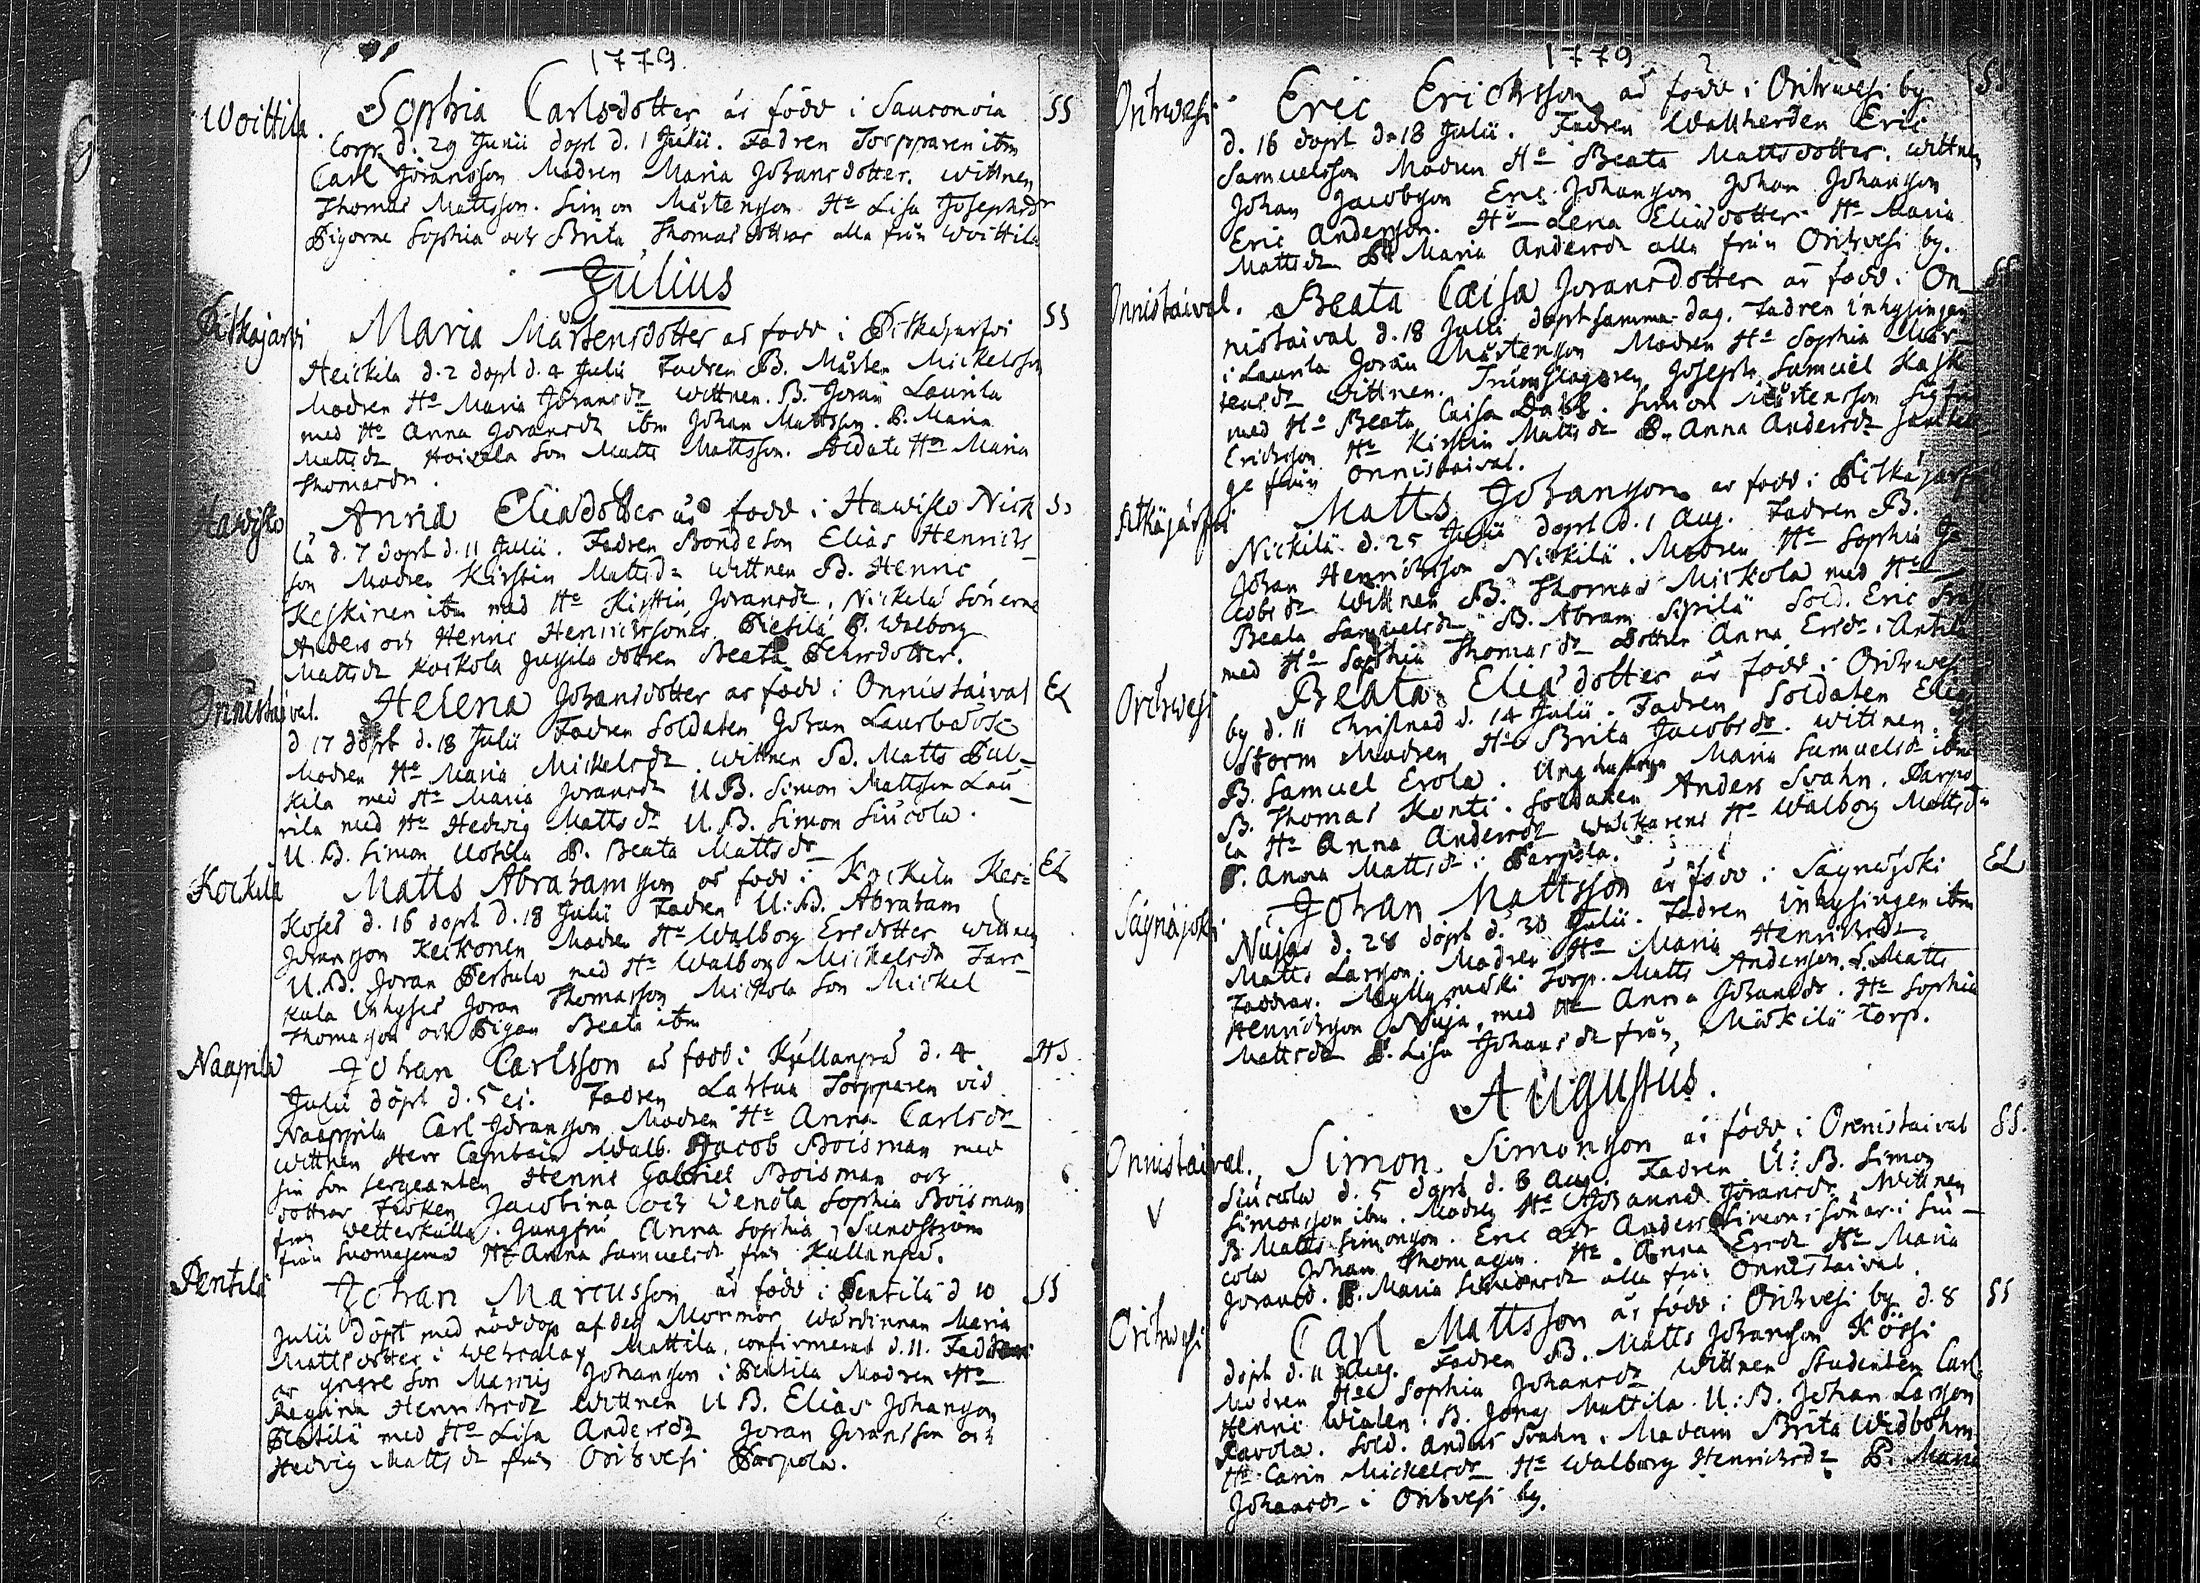 1779
Woittila. Sophia Carlsdotter är född i Sauconoia SS
Torp. d. 29 Junii döpt d. 1 Julii. Fadren Torpparen ibm
Carl Jöransson Modren Maria Johansdotter. Wittnen
Thomas Mattsson. Simon Mårtensson Hu Lisa Josephsdr
Pigorne Sophia och Brita Thomasdöttrar alla från Woittila
Julius
Pitkäjärvi Maria Mårtensdotter är född i Pitkäjärfvi SS
Heickilä d. 2 döpt d. 4 Julii Fadren B. Mårten Mickelsson
Modren Hu Maria Jöransdr Wittnen. B. Jöran Laurila
med Hu Anna Jöransdr ibm Johan Mattsson. P. Maria
Mattsdr Son Matts Mattsson. Soldats Hu Maria
Thomasdr.
Hawisto Anna Eliædotter är född i Hawisto Nick SS
lä d. 7 döpt d. 11 Julii. Fadren Bondeson Elias Henrichs
son Modren Kirstin Mattsdr Wittnen B. Henric
Keskinen ibm med Hu Kirstin Jöransdr. Nickilä Sönerne
Anders och Henric Henricssöner. Pietilä P. Walborg
Mattsdr Koskola Jussila dottren Beata Pehrsdotter.
Onnistaival. Helena Johansdotter är född i Onnistaival EL
d 17 döpt d. 18 Julii Fadren Soldaten Johan
Modren Hu Maria Mickelsdr Wittnen B. Matts
kila med Hu Maria Jöransdr U B. Simon Mattsson Lau
rila med Hu Hedvig Mattsdr U. B. Simon Siucola.
U. B. Simon Uotila P. Beata Mattsdr
Kockila Matts Abrahamsson är född i Kockila Kei= EL
Koses d. 16 döpt d. 18 Julii Fadren U:B. Abraham
Jöransson Keckonen Modren Hu Walborg Ersdotter Wittnen
U. B. Jöran Perttula med Hu Walborg Mickelsdr
kala Inhyses Jöran Thomasson Mickola Son Mickel
Thomasson och Pigan Beata ibm
Naapila Johan Carlsson är född i Kullanpää d. 4 HS
Julii döpt d. 5 ej. Fadren Lahtua Torpparen vid
Naappila Carl Jöransson Modren Hu Anna Carlsdr
Wittnen Herr Capitain Walb. Jacob Boisman med
sin son Sergeanten Henric Gabriel Boisman och
döttrar Fröken Jacobina och Wendla Sophia Boisman
från Wetterkulla. Jungfru Anna Sophia Sundström
från Suomasema Hu Anna Samuelsdr från Kullanpä.
Pentilä Johan Marcusson är född i Pentilä d 10 SS
Julii döpt med nöddop af des Mormor Wärdinnan Maria
Mattsdotter i Wehcalax Mattila, confirmerad d. 11. Fadren
är yngre son Marcus Johansson i Pentilä Modren Hu
Regina Henrichsdr Wittnen U B. Elias Johansson
Pentilä med Hu Lisa Andersdr Jöran Jöransson och
Hedvig Mattsdr från Orihvesi Parpola.
1779
Orihvesi Eric Ericksson är född i Orihwesi by SS
d. 16 döpt d. 18 Julii. Fadren Wallherden Eric
Samuelsson Modren Hu Beata Mattsdotter. Wittnen
Johan Jacobsson Eric Johansson Johan Johansson
Eric Andersson. Hu Lena Eliædotter Hu Maria
Mattsdr P. Maria Andersdr alla från Orihvesi by.
Onnistaival. Beata Caisa Jöransdotter är född i On SS
nistaival d. 18 Julii döpt samma dag. Fadren Inhysingen
i Laurila Jöran Mårtensson Modren Hu Sophia Mår
tensdr Wittnen. Trumslagaren Joseph Samuel Kask
med Hu Beata Caisa Dahl. Simon Mårtensson Sigfrid
Ericsson Hu Kirstin Mattsdr P. Anna Andersdr samtel.
ge från Onnistaival.
Pitkäjärfvi Matts Johansson är född i Pitkäjärfvi
Nickilä d. 25 Julii döpt d. 1 Aug. Fadren B.
Johan Henrichsson Nickilä. Modren Hu Sophia Ja
cobsdr Wittnen B. Thomas Mickola med Hu
Beata Samuelsdr B. Abram Sipilä Sold. Eric
med Hu Sophia Thomasdr Dotter Anna Ersdr i Antila
Orihwesi Beata Eliædotter är född i Orihwesi
by d. 11 christnad d. 14 Julii. Fadren Soldaten Elias
Storm Modren Hu Brita Jacobsdr. Wittnen.
B. Samuel Erola. Ung hustrun Maria Samuelsdr ibm
B. Thomas Konti. Soldaten Anders Svahn. Parpo
la Hu Anna Andersdr Hu Walborg Mattsdr
P. Anna Mattsdr i Parpola.
Säynäjoki Johan Mattsson är född i Säynäjoki EL
Nujas d. 28 döpt d. 30 Julii. Fadren Inhysingen ibm
Matts Larsson. Modren Hu Maria Henrichsdr
Faddrar. Myllymäki Torp. Matts Andersson. S. Matts
Henrichsson Nuja, med Hu Anna Johansdr. Hu Sophia
Mattsdr P. Lisa Johansdr från Mäkilä torp.
Augustus.
Onnistaival. Simon Simonsson är född i Onnistaival SS.
Siucola d. 5 döpt d. 8 Aug. Fadren U:B. Simon
Simonsson ibm. Modren Hu Johanna Jöransdr. Wittnen
B Matts Simonsson. Eric och Anders Simons söner i Siu
cola Johan Thomasson Hu Anna Ersdr Hu Maria
Jöransd. P. Maria Simonsdr alla från Onnistaival.
Orihvesi Carl Mattsson är född i Orihvesi by d. 8 SS
döpt d. 11 Aug. Fadren B. Matts Johansson Kössi
Modren Hu Sophia Johansdr Wittnen Studenten Carl
Henric Widen. B. Jöns Mattila U:B. Johan Larsson
Pavola. Sold. Anders Svahn. Madam Brita Widbohm
Hu Carin Mickelsdr Hu Walborg Henrichsdr P. Maria
Johansdr i Orihvesi by.